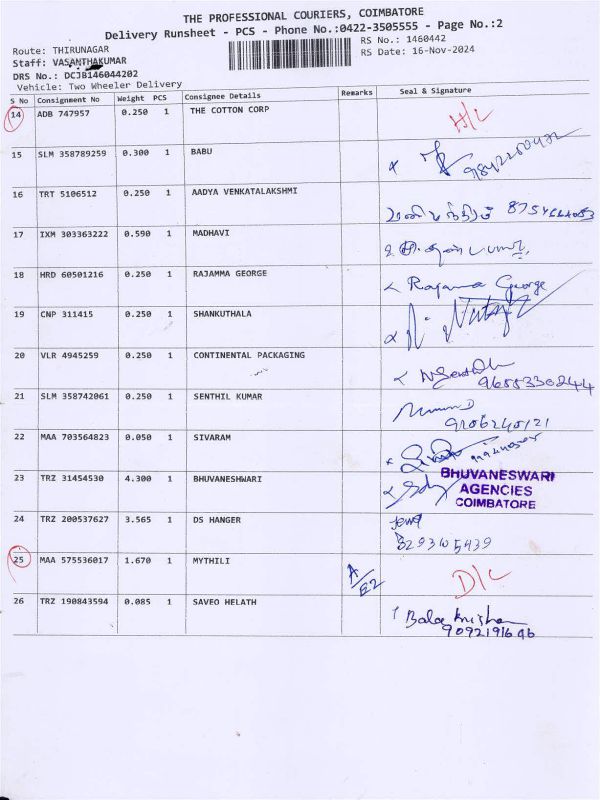 THE PROFESSIONAL COURIERS, COIMBATORE
Delivery Runsheet - PCS - Phone No.:0422-3505555 - Page No.:2
Route: THIRUNAGAR
RS No.: 1460442
Staff: VASANTHAKUMAR
RS Date: 16-Nov-2024
DRS No.: DCJB146044202
Vehicle: Two Wheeler Delivery
S No Consignment No Weight PCS Consignee Details Remarks Seal & Signature
14 ADB 747957 0.250 1 THE COTTON CORP H/L
15 SLM 358789259 0.300 1 BABU
16 TRT 5106512 0.250 1 AADYA VENKATALAKSHMI
17 IXM 303363222 0.590 1 MADHAVI
18 HRD 60501216 0.250 1 RAJAMMA GEORGE Rajamma George
19 CNP 311415 0.250 1 SHANKUTHALA
20 VLR 4945259 0.250 1 CONTINENTAL PACKAGING
21 SLM 358742061 0.250 1 SENTHIL KUMAR
22 MAA 703564823 0.050 1 SIVARAM
23 TRZ 31454530 4.300 1 BHUVANESHWARI
BHUVANESWARI
AGENCIES
COIMBATORE
24 TRZ 200537627 3.565 1 DS HANGER
25 MAA 575536017 1.670 1 MYTHILI A/E2 D/L
26 TRZ 190843594 0.085 1 SAVEO HELATH Balakrishnan
9092191646